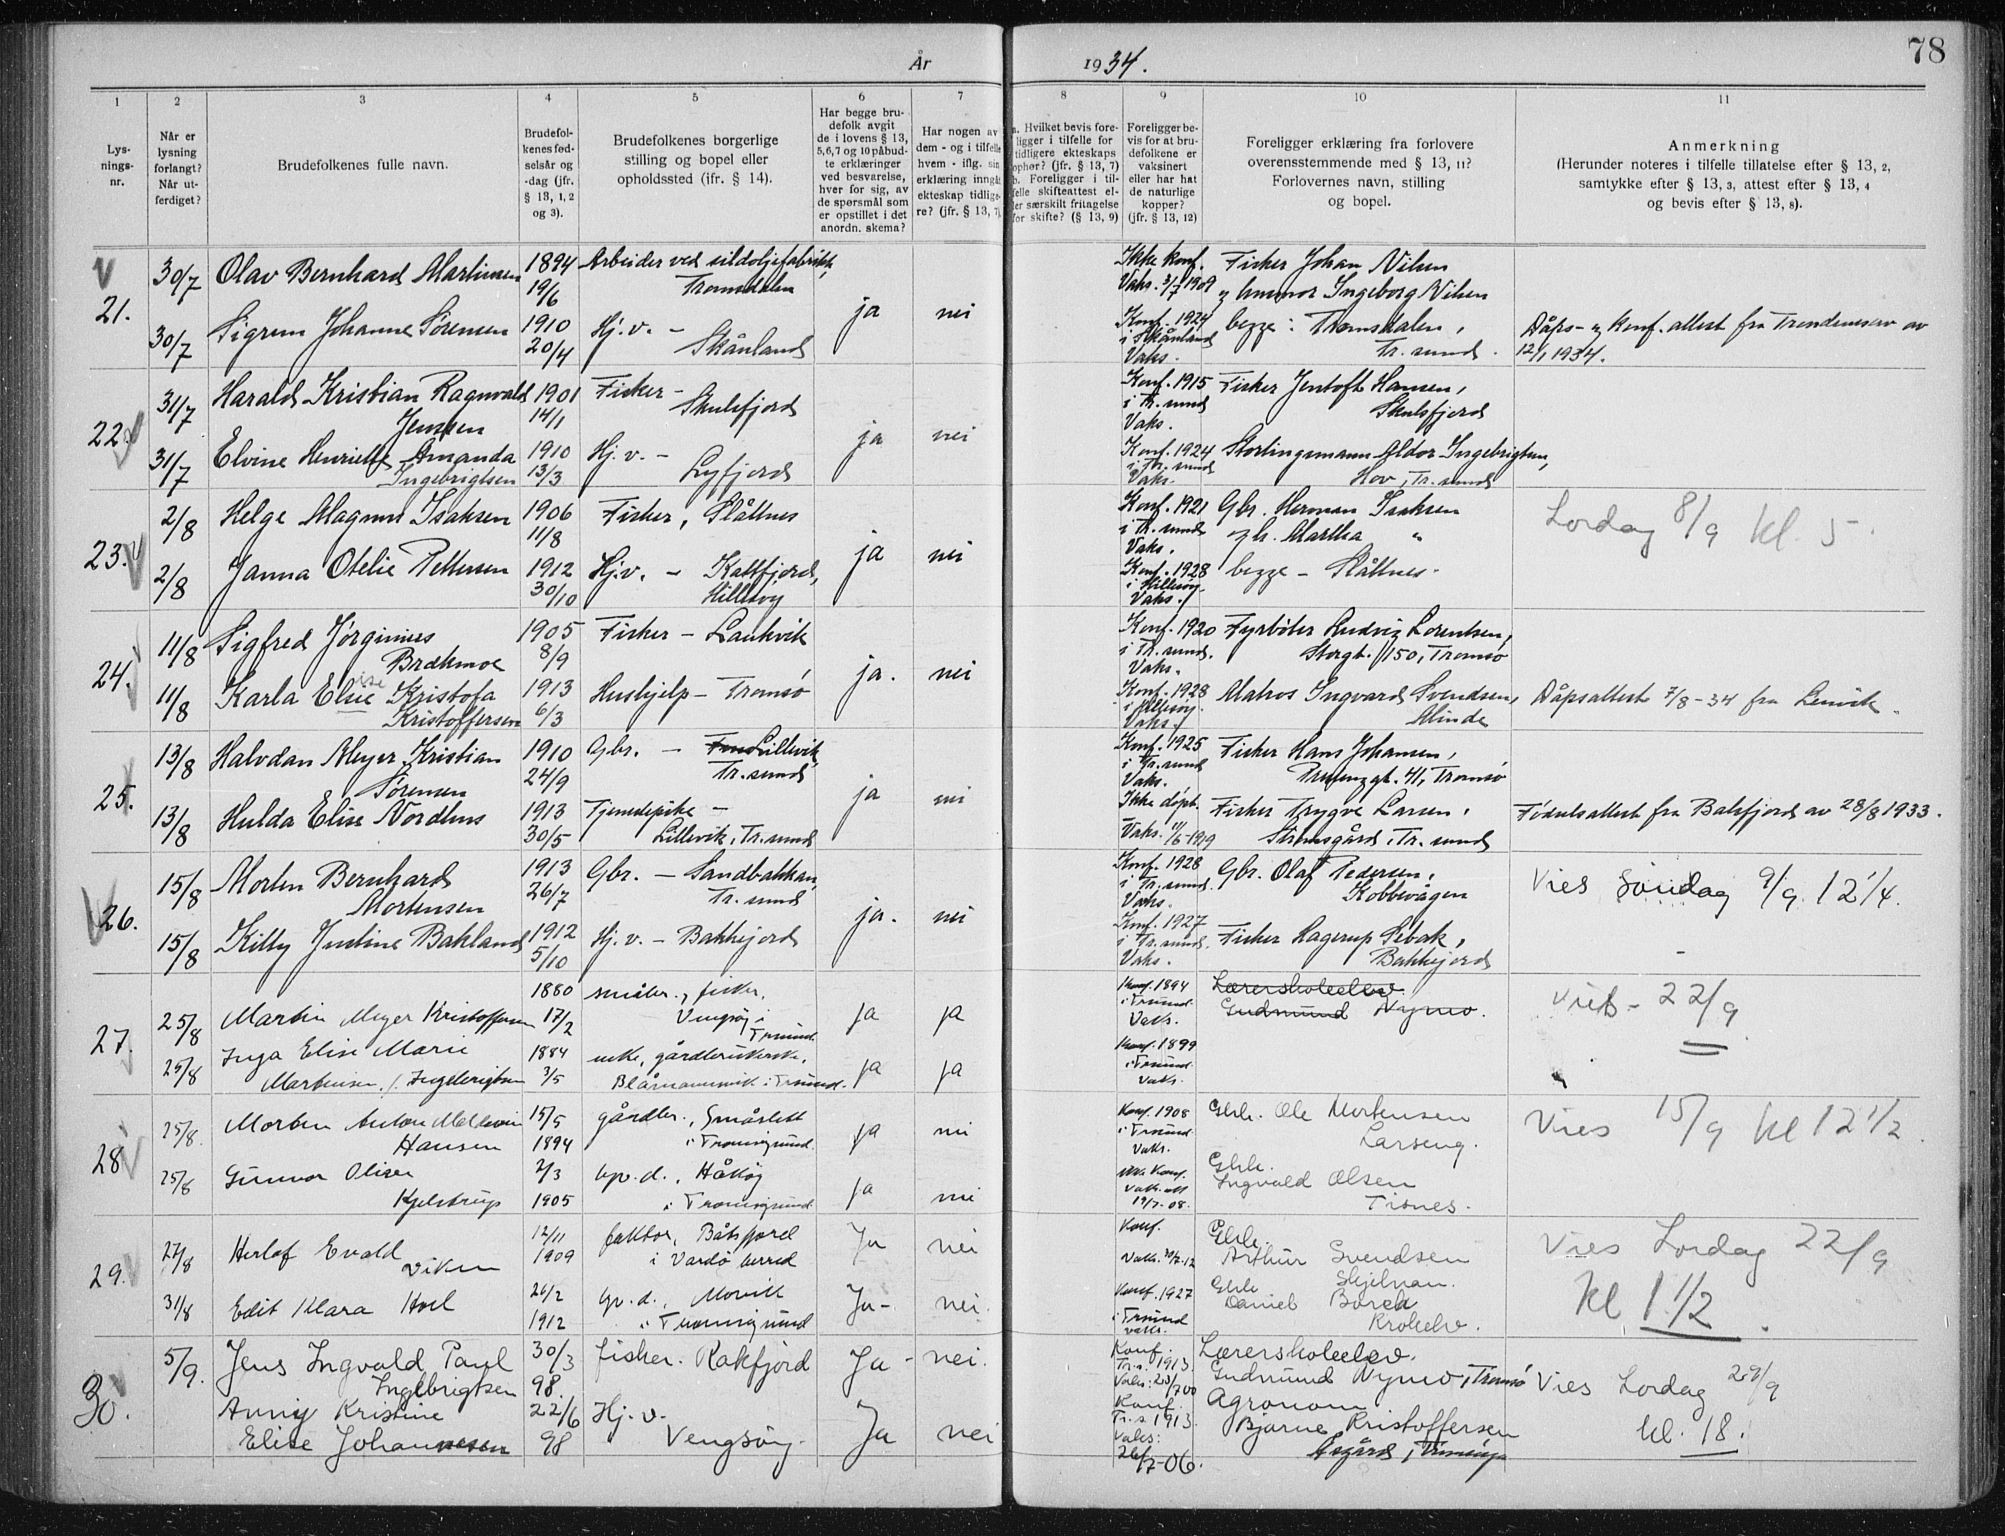 År 1934.
78
1 2 3 4 5 6 7 8 9 10 11
Lys-
nings-
nr.
Når er
lysning
forlangt?
Når ut-
ferdiget?
Brudefolkenes fulle navn.
Brudefol-
kenes fød-
selsår og
-dag (jfr.
§ 13, 1, 2
og 3).
Brudefolkenes borgerlige
stilling og bopel eller
opholdssted (ifr. § 14).
Har begge bru-
defolk avgit
de i lovens § 13,
5,6,7 og 10 påbud-
te erklæringer
ved besvarelse,
hver for sig, av
de spørsmål som
er opstillet i det
anordn. skema?
Har nogen av
dem - og i tilfelle
hvem - iflg. sin
erklæring inngåt
ekteskap tidlige-
re? (jfr. § 13, 7)
a. Hvilket bevis fore-
ligger i tilfelle for
tidligere ekteskaps
ophør? (jfr. § 13, 7)
b. Foreligger i til-
felle skifteattest el-
ler særskilt fritagelse
for skifte? (§ 13, 9)
Foreligger be-
vis for at bru-
defolkene er
vaksinert
eller har hat
de naturlige
kopper?
(jfr. § 13, 12)
Foreligger erklæring fra forlovere
overensstemmende med § 13, 11?
Forlovernes navn, stilling
og bopel.
Anmerkning
(Herunder noteres i tilfelle tillatelse efter § 13, 2,
samtykke efter § 13, 3, attest efter § 13, 4
og bevis efter § 13, 8).
21.
30/7 Olav Bernhard Martinsen 1894 19/6 Arbeider ved sildoljefabrikk,
Tromsdalen
Ikke konf. Vaks. 3/7 1909
Fisker Johan Nilsen
og husmor Ingeborg Nilsen
ja nei
30/7 Sigrun Johanne Sørensen 1910 20/4 Hj.v. - Skånland
Konf. 1924 i Skånland Vaks.
begge: Tromsdalen,
Tr. sund.
Dåps- og konf. attest fra Trondenes av
12/1 1934.
22.
31/7 Harald Kristian Ragnvald
Jensen
1901 14/1 Fisker - Skulsfjord
Konf. 1915 i Tr. sund Vaks.
Fisker Jentoft Hansen,
Skulsfjord
ja nei
31/7 Elvine Henriette Amanda
Ingebrigtsen
1910 13/3 Hj. v. - Lyfjord
Konf. 1924 i Tr. sund Vaks.
Stortingsmann Aldor Ingebrigtsen,
Hov, Tr. sund
23.
2/8 Helge Magnus Isaksen 1906 11/8 Fisker, Slåttnes
Konf. 1921 i Tr. sund Vaks.
Gbr. Herman Isaksen
og h. Martha "
Lordag 8/9 kl. 5
ja nei
2/8 Janna Otelie Pettersen 1912 30/10 Hj.v. - Kattfjord,
Hillesøy
Konf. 1928 i Hillesøy. Vaks.
begge - Slåttnes.
24.
11/8 Sigfred Jørginius
Brækmoe
1905 8/9 Fisker - Laukvik
Konf. 1920 i Tr. sund. Vaks.
Fyrbøter Ludvig Lorentsen,
Storgt. 150, Tromsø
ja. nei
11/8 Karla Elise Kristofa
Kristoffersen
1913 6/3 Hushjelp - Tromsø
Konf. 1928 i Hillesøy. Vaks.
Matros Ingvard Svendsen,
Minde
Dåpsattest 7/8 - 34 fra Lenvik.
25.
13/8 Halvdan Meyer Kristian
Sørensen
1910 24/9 Gbr. - Lillevik
Tr. sund
Konf. 1925 i Tr. sund Vaks.
Fisker Hans Johansen,
41, Tromsø
ja nei
13/8 Hulda Elise Nordhus 1913 30/5 Tjenestepike -
Lillevik, Tr. sund
Ikke døpt. Vaks.
Fisker Trygve Larsen,
Strømsgård, Tr. sund
Fødselsattest fra Balsfjord av 28/8 1933.
26.
15/8 Morten Bernhard
Mortensen
1913 26/7 Gbr. - Sandbakkan,
Tr. sund
Konf. 1928 i Tr. sund. Vaks.
Gbr. Olaf Pedersen,
Kobbevågen
Vies Søndag 9/9 12 1/4.
ja. nei
15/8 Kitty Justine Bakland 1912 5/10 Hj. v. - Bakkejord
Konf. 1927 i Tr. sund. Vaks.
Fisker Lagerup Sebak,
Bakkejord
27.
25/8 Martin Meyer Kristoffersen 1880 17/2 småbr. og fisker,
Vengsøy i
Tr.sund
ja ja
Konf. 1894 i Tr.sund. Vaks.
Lærerskoleelev
Gudmund Nymo.
Vies - 22/9
25/8 Inga Elise Marie
Martinsen, f. Ingebrigtsen
1884 3/5 enke, gårdbrukerske,
Blåmannsvik i Tr.sund.
ja ja
Konf. 1899 i Tr.sund Vaks.
28.
25/8. Morten Anton
Hansen
15/5 1894 gårdbr., Småslett
i Tromsøysund
ja nei
Konf. 1908 i Tr.sund. Vaks.
Gbr. Ole Mortensen
Larseng.
Vies 15/9 kl 12 1/2.
25/8 Gunvor Olise
Kjelstrup
2/3 1905 Gp. d., Håkøy
i Tromsøysund.
ja nei
Ikke Konf. Vak. att 19/7-08.
Gbr.
Ingvald Olsen
Tisnes.
29.
27/8 Herlof Evald
Viken
12/11 1909 faktor, Båtsfjord
i Vardø herred
Ja nei
Konf. Vaks.
Gbr.
Arthur Svendsen
Skjelnan.
Vies Lordag 22/9
kl 1 1/2.
31/8 Edit Klara Hoel 26/2 1912 Gp. d., Movik
i Tromsøysund
Ja- nei.
Konf. 1927 i Tr.sund vaks.
Gbr.
Daniel Borch
Krokelv.
30.
5/9. Jens Ingvald Paul
Ingebrigtsen
30/3 98. fisker. Rakfjord
Ja - nei.
Konf. Tr.s. 1913. Vaks: 23/7 00
Lærerskoleelev.
Gudmund Nymo, Tromsø
Vies Lordag 29/9
kl. 18.
Anny Kristine
Elise Johannesen
22/6 98 Hj. v.
Vengsøy.
Ja nei
Konf. Tr.s 1913. Vaks: 26/7-06.
Agronom
Bjarne Kristoffersen
Åsgård, Tromsøy